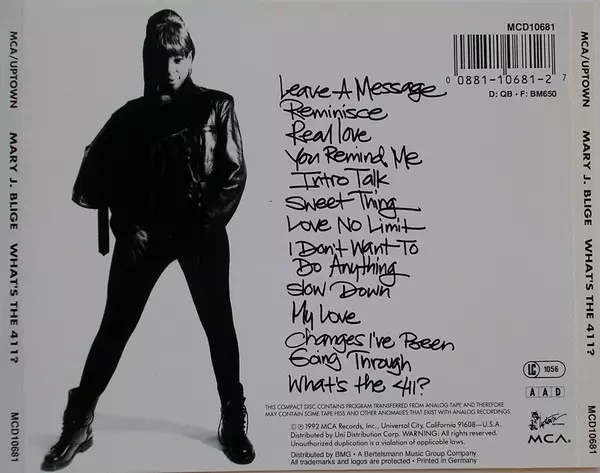 MCA/UPTOWN MARY J. BLIGE WHAT'S THE 411? MCD10681
MCD10681
0 0881-10681-2 7
D: QB · F: BM650
Leave A Message
Reminisce
Real love
You Remind Me
Intro Talk
Sweet Thing
Love No Limit
I Don't Want To
Do Anything
Slow Down
My Love
Changes I've Been
Going Through
What's the 411?
LC 1056
AAD
THIS COMPACT DISC CONTAINS PROGRAM TRANSFERRED FROM ANALOG TAPE AND THEREFORE
MAY CONTAIN SOME TAPE HISS AND OTHER ANOMALIES THAT EXIST WITH ANALOG RECORDINGS.
© ℗ 1992 MCA Records, Inc., Universal City, California 91608—U.S.A.
Distributed by Uni Distribution Corp. WARNING: All rights reserved.
Unauthorized duplication is a violation of applicable laws.
Distributed by BMG • A Bertelsmann Music Group Company
All trademarks and logos are protected • Printed in Germany
MCA.
MCA/UPTOWN MARY J. BLIGE WHAT'S THE 411? MCD10681